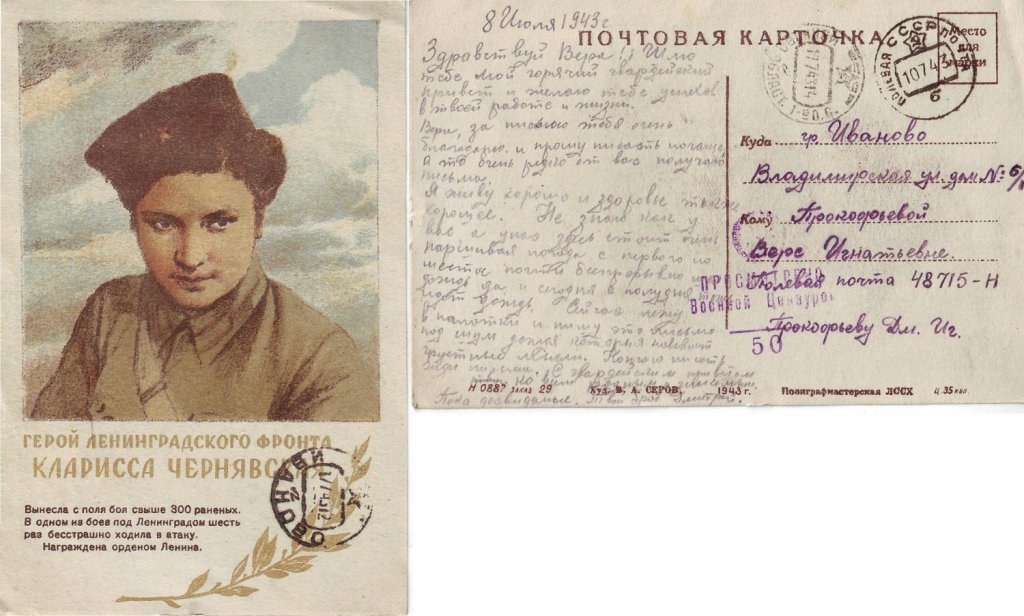 ГЕРОЙ ЛЕНИНГРАДСКОГО ФРОНТА
КЛАРИССА ЧЕРНЯВСКАЯ
Вынесла с поля боя свыше 300 раненых.
В одном из боев под Ленинградом шесть
раз бесстрашно ходила в атаку.
Награждена орденом Ленина.
ИВАНОВО ОБЛ
8 Июля 1943 г
Здравствуй Вера!; Шлю
тебе мой горячий гвардейский
привет и желаю тебе успехов
в твоей работе и жизни.
Вера, за письмо тебя очень
благодарю. и прошу писать почаще
а то очень редко от вас получаю
письма.
Я живу хорошо и здоровье тоже
хорошее. Не знаю как у
вас а у нас здесь стоит очень
паршивая погода с первого по
шестое почти беспрерывно шел
дождь да и сегодня с полудня
дождь. Сейчас лежу
в палатки и пишу это письмо
под шум дождя который навевает
грустные мысли. Кончаю писать
жду письма. С гвардейским приветом
ко всем родным и знакомым
Пока досвидания. Твой брат Дмитрий.
ПОЧТОВАЯ КАРТОЧКА
Место
для
марки
ПОЛЕВАЯ ПОЧТА СССР
10 7 43
б
Куда гр. Иваново
Владимирская ул. дом №
Кому Прокофьевой
Вере Игнатьевне.
Полевая почта 48715-Н
Прокофьеву Дм. Иг.
ПРОСМОТРЕНО
Военной Цензурой
50
М 0887 Заказ 29
Худ. В. А. СЕРОВ.
1943 г.
Полиграфмастерская ЛССХ
Ц. 35 коп.